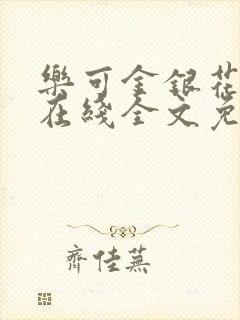 樂可金銀花
在綫全文免
齊佳蕪